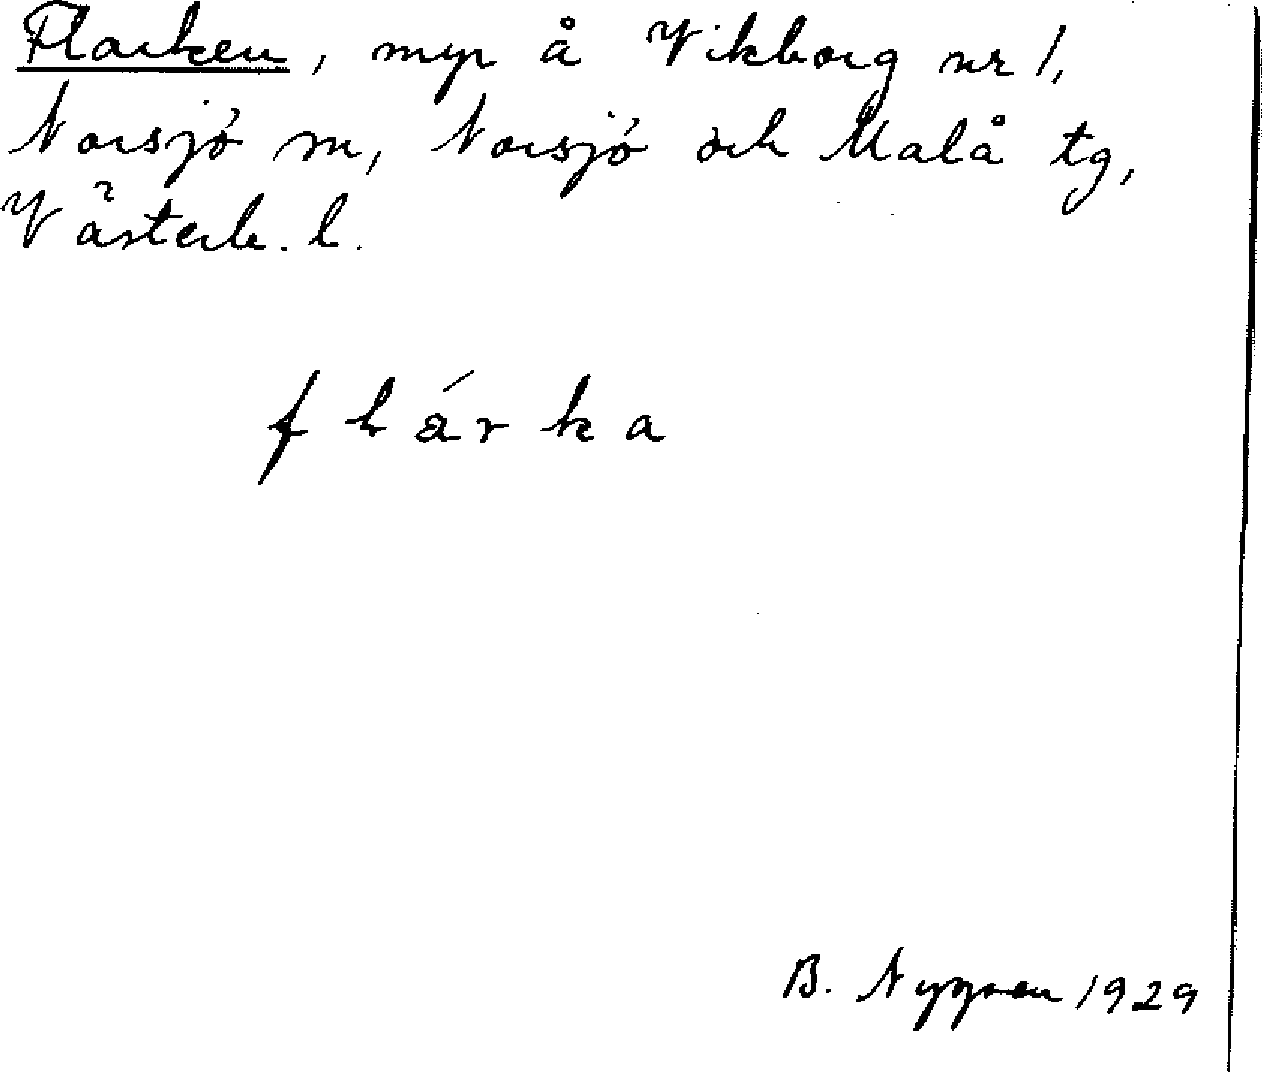 Flarken, myr å Vikborg nr 1,
Norsjö sn, Norsjö och Malå tg,
Västerb. l.
flárka
B. Nygren 1929